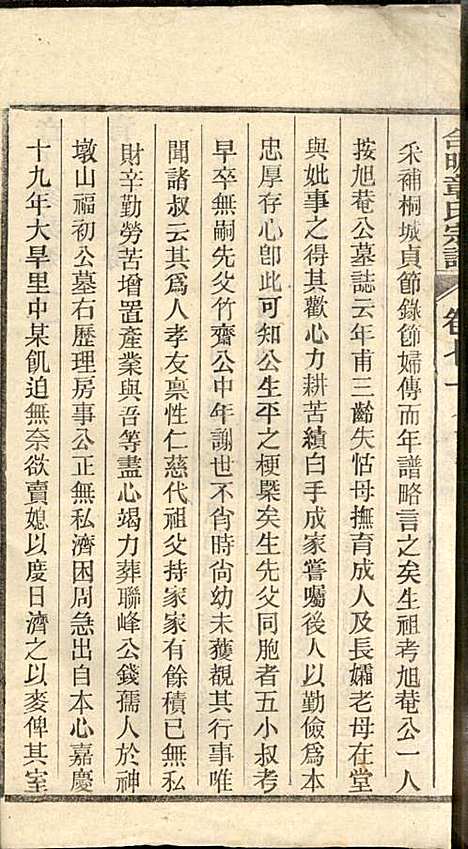 合明章氏宗譜 卷七十
禾補桐城貞節錄節婦傳而年譜略言之矣生祖考旭菴公一人
按旭菴公墓誌云年甫三齡失怙母撫育成人及長孀老母在堂
與妣事之得其歡心力耕苦績白手成家嘗囑後人以勤儉爲本
忠厚存心卽此可知公生平之梗槩矣生先父同胞者五小叔考
早卒無嗣先父竹齋公中年謝世不肖時尙幼未獲覩其行事唯
聞諸叔云其爲人孝友稟性仁慈代祖父持家家有餘積已無私
財辛勤勞苦增置產業與吾等盡心竭力葬聯峰公錢孺人於神
墩山福初公墓右歷理房事公正無私濟困周急出自本心嘉慶
十九年大旱里中某飢迫無奈欲賣媳以度日濟之以麥俾其室